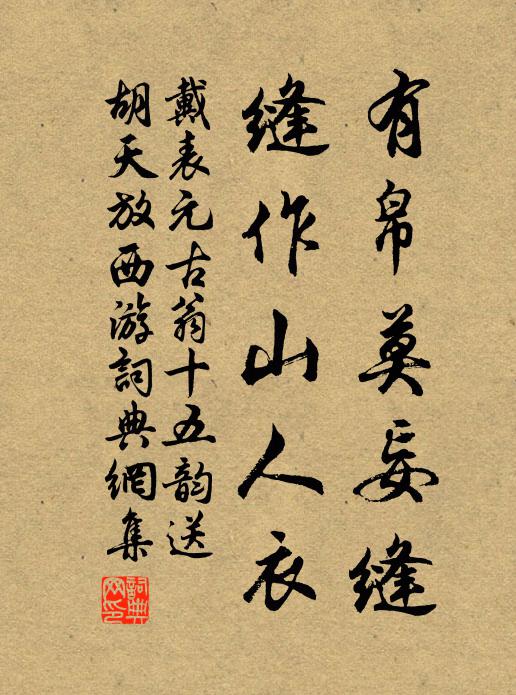 有帛莫妄縫
縫作山人衣
戴表元古翁十五韵送
胡天放西游詞典網集
詞典网印